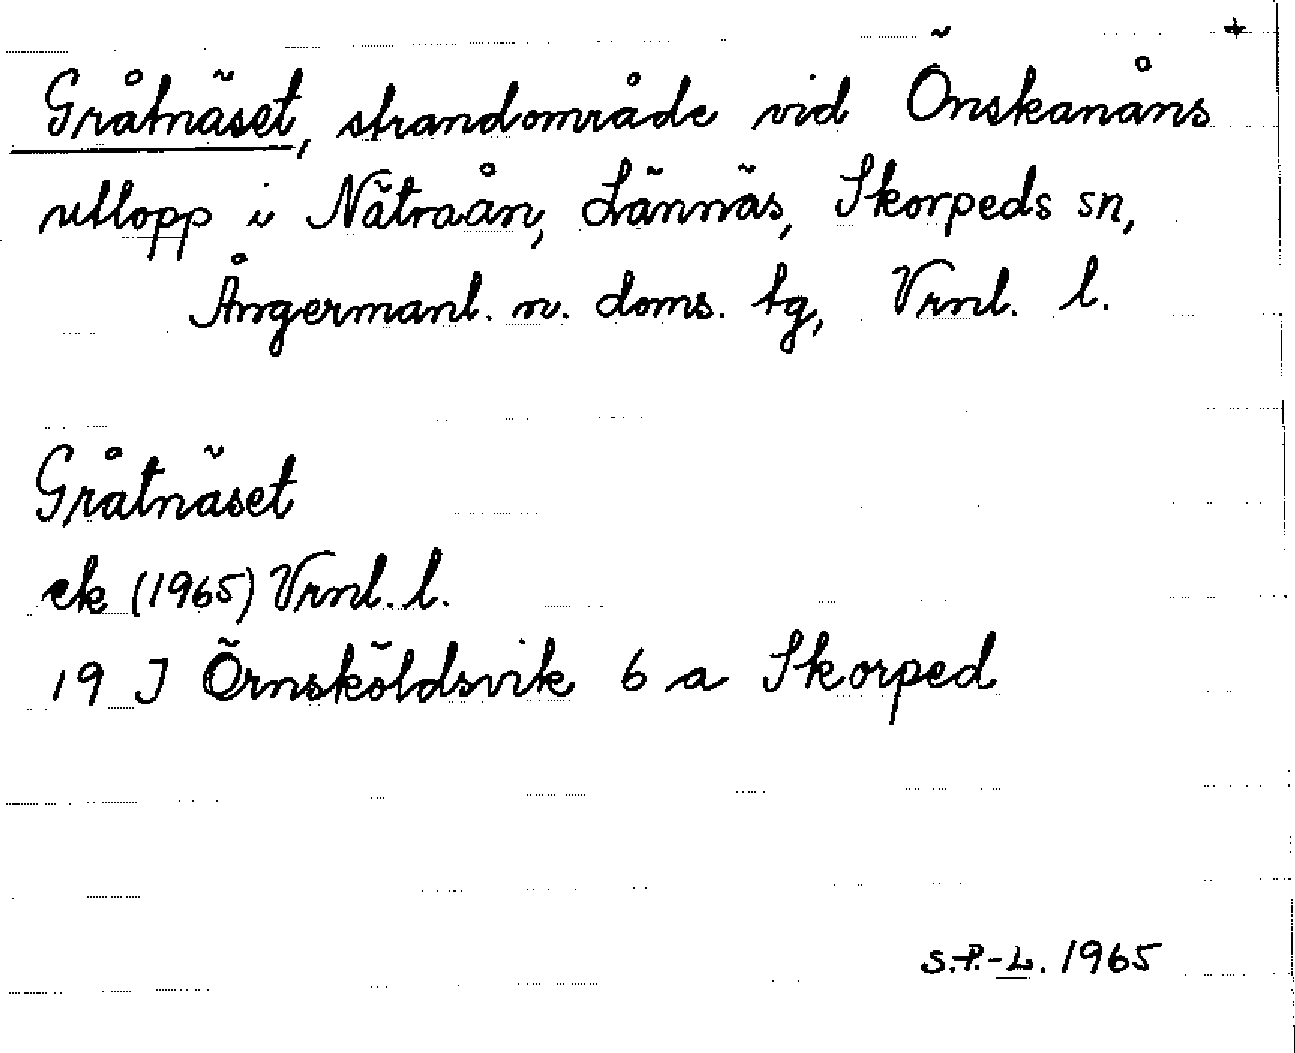 +
Gråtnäset, strandområde vid Önskanåns
utlopp i Nätraån, Lännäs, Skorpeds sn,
Ångermanl. n. doms. tg, Vrnl. l.
Gråtnäset
ek (1965) Vrnl. l.
19 J Örnsköldsvik 6 a Skorped
S.P.-L. 1965